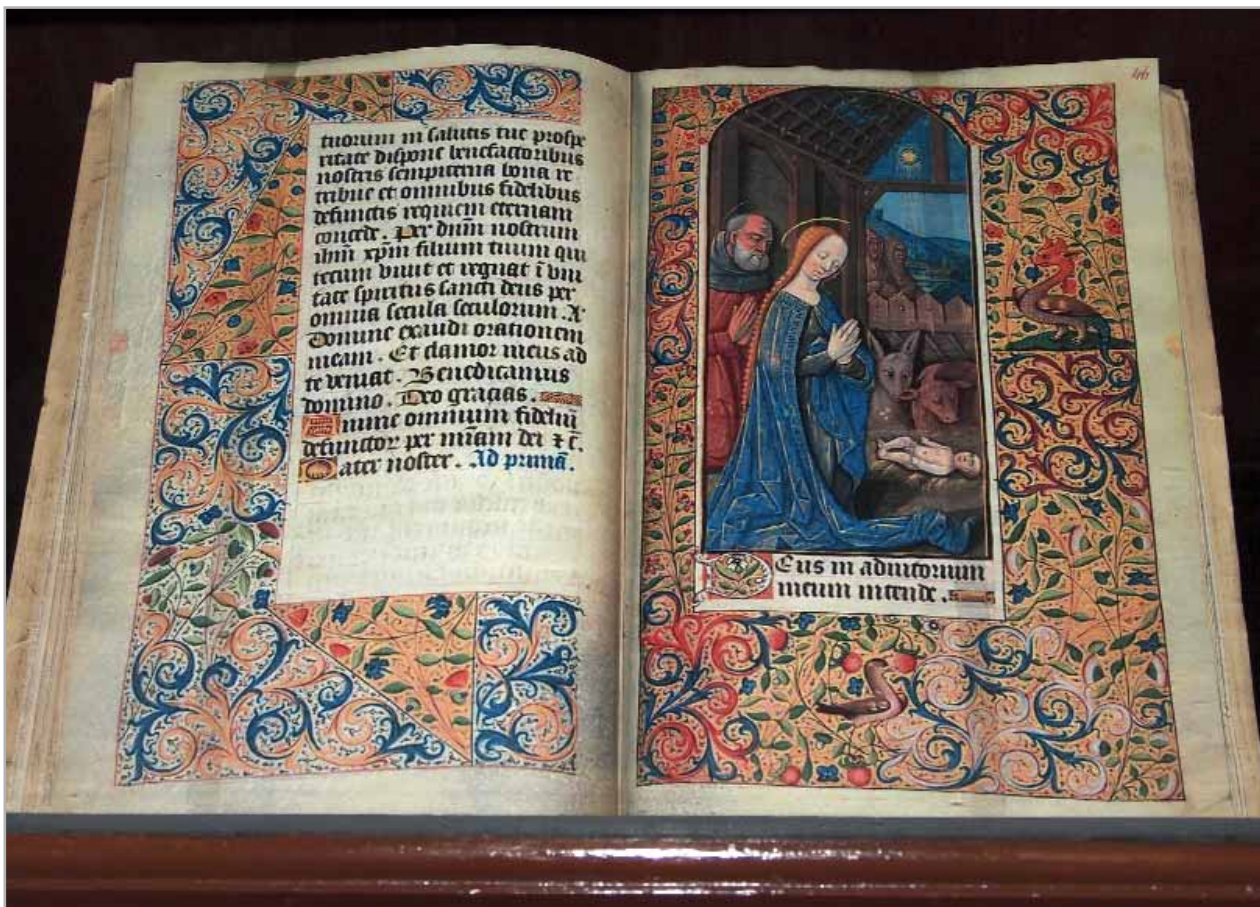 tuorum in salutis tue prospe
ritate dispone benefactoribus
nostris sempiterna bona re
tribue et omnibus fidelibus
defunctis requiem eternam
concede. Per dñm nostrum
ihm̃ xp̃m filium tuum qui
tecum viuit et regnat ĩ vni
tate spiritus sancti deus per
omnia secula seculorum. A
Domine exaudi orationem
meam. Et clamor meus ad
te veniat. Benedicamus
domino. Deo gracias.
Anime omnium fideliũ
defunctoꝝ per mĩam dei ⁊ c̃.
Pater noster. Ad primã.
46
Deus in adiutorium
meum intende.